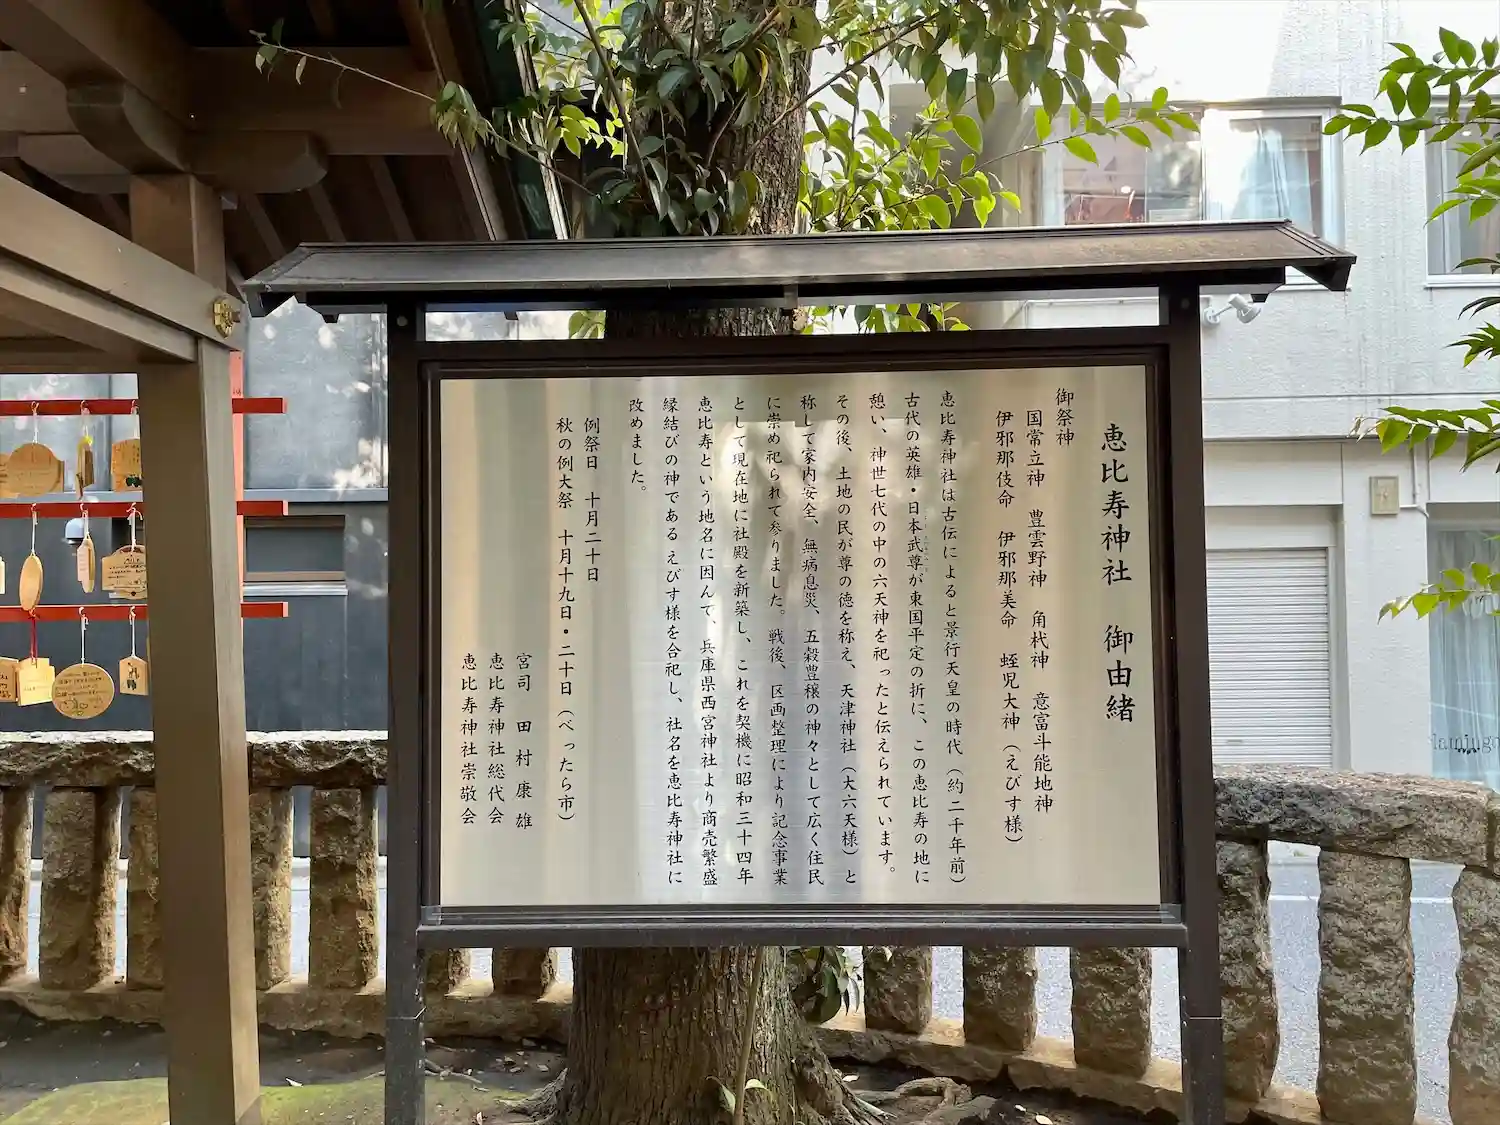 恵比寿神社　御由緒
御祭神
国常立神　豊雲野神　角杙神　意富斗能地神
伊邪那伎命　伊邪那美命　蛭児大神（えびす様）
恵比寿神社は古伝によると景行天皇の時代（約二千年前）
古代の英雄・日本武尊が東国平定の折に、この恵比寿の地に
憩い、神世七代の中の六天神を祀ったと伝えられています。
その後、土地の民が尊の徳を称え、天津神社（大六天様）と
称して家内安全、無病息災、五穀豊穣の神々として広く住民
に崇め祀られて参りました。戦後、区画整理により記念事業
として現在地に社殿を新築し、これを契機に昭和三十四年
恵比寿という地名に因んで、兵庫県西宮神社より商売繁盛
縁結びの神である えびす様を合祀し、社名を恵比寿神社に
改めました。
例祭日　十月二十日
秋の例大祭　十月十九日・二十日（べったら市）
宮司　田村康雄
恵比寿神社総代会
恵比寿神社崇敬会